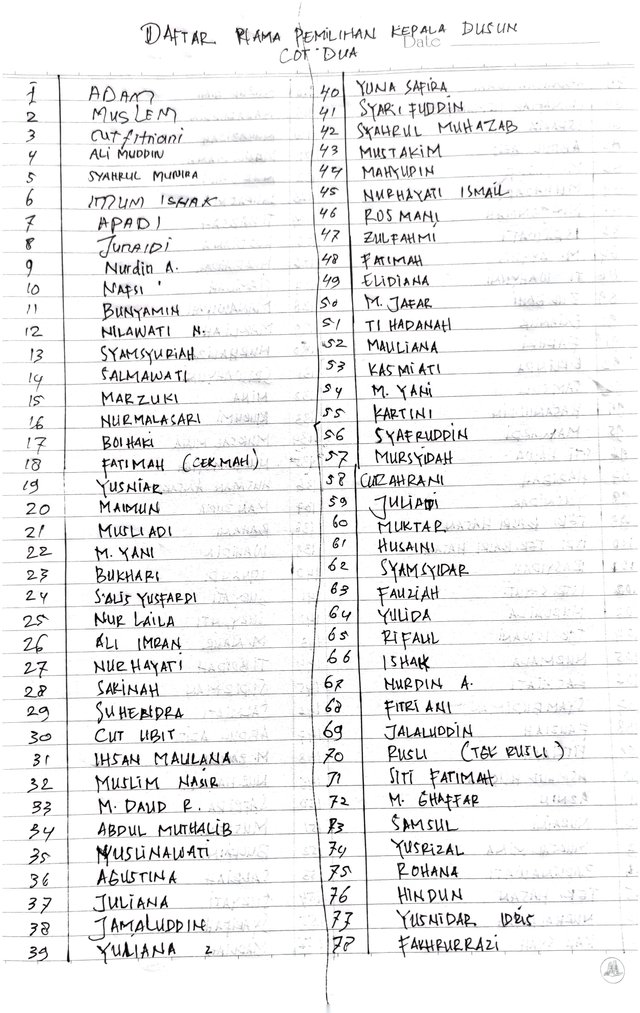 DAFTAR NAMA PEMILIHAN KEPALA DUSUN
Date
COT DUA
1 ADAM
2 MUSLEM
3 Cut fitriani
4 ALI MUDDIN
5 SYAHRUL MUNIRA
6 ISHAK
7 APADI
8 Junaidi
9 Nurdin A.
10 NAFSI
11 BUNYAMIN
12 NILAWATI N.
13 SYAMSURIAH
14 SALMAWATI
15 MARZUKI
16 NURMALASARI
17 BOIHAKI
18 FATIMAH (CEK.MAH)
19 YUSNIAR
20 MAIMUN
21 MUSLIADI
22 M. YANI
23 BUKHARI
24 S.ALIS YUSFARDI
25 NUR LAILA
26 ALI IMRAN
27 NUR HAYATI
28 SAKINAH
29 SUHENDRA
30 CUT UBIT
31 IHSAN MAULANA
32 MUSLIM NASIR
33 M. DAUD R.
34 ABDUL MUTHALIB
35 MUSLINAWATI
36 AGUSTINA
37 JULIANA
38 JAMALUDDIN
39 YULIANA 2
40 YUNA SAFIRA
41 SYARIFUDDIN
42 SYAHRUL MUHAZAB
43 MUSTAKIM
44 MAHYUDIN
45 NURHAYATI ISMAIL
46 ROSMANI
47 ZULFAHMI
48 FATIMAH
49 ELIDIANA
50 M. JAFAR
51 TI HADANAH
52 MAULIANA
53 KASMIATI
54 M. YANI
55 KARTINI
56 SYAFRUDDIN
57 MURSYIDAH
58 CUT ZAHRANI
59 JULIADI
60 MUKTAR
61 HUSAINI
62 SYAMSYIDAR
63 FAUZIAH
64 YULIDA
65 RIFAUL
66 ISHAK
67 NURDIN A.
68 FITRIANI
69 JALALUDDIN
70 RUSLI (TEK RUSLI)
71 SITI FATIMAH
72 M. GHAFFAR
73 SAMSUL
74 YUSRIZAL
75 ROHANA
76 HINDUN
77 YUSNIDAR IDRIS
78 FAKHRURRAZI